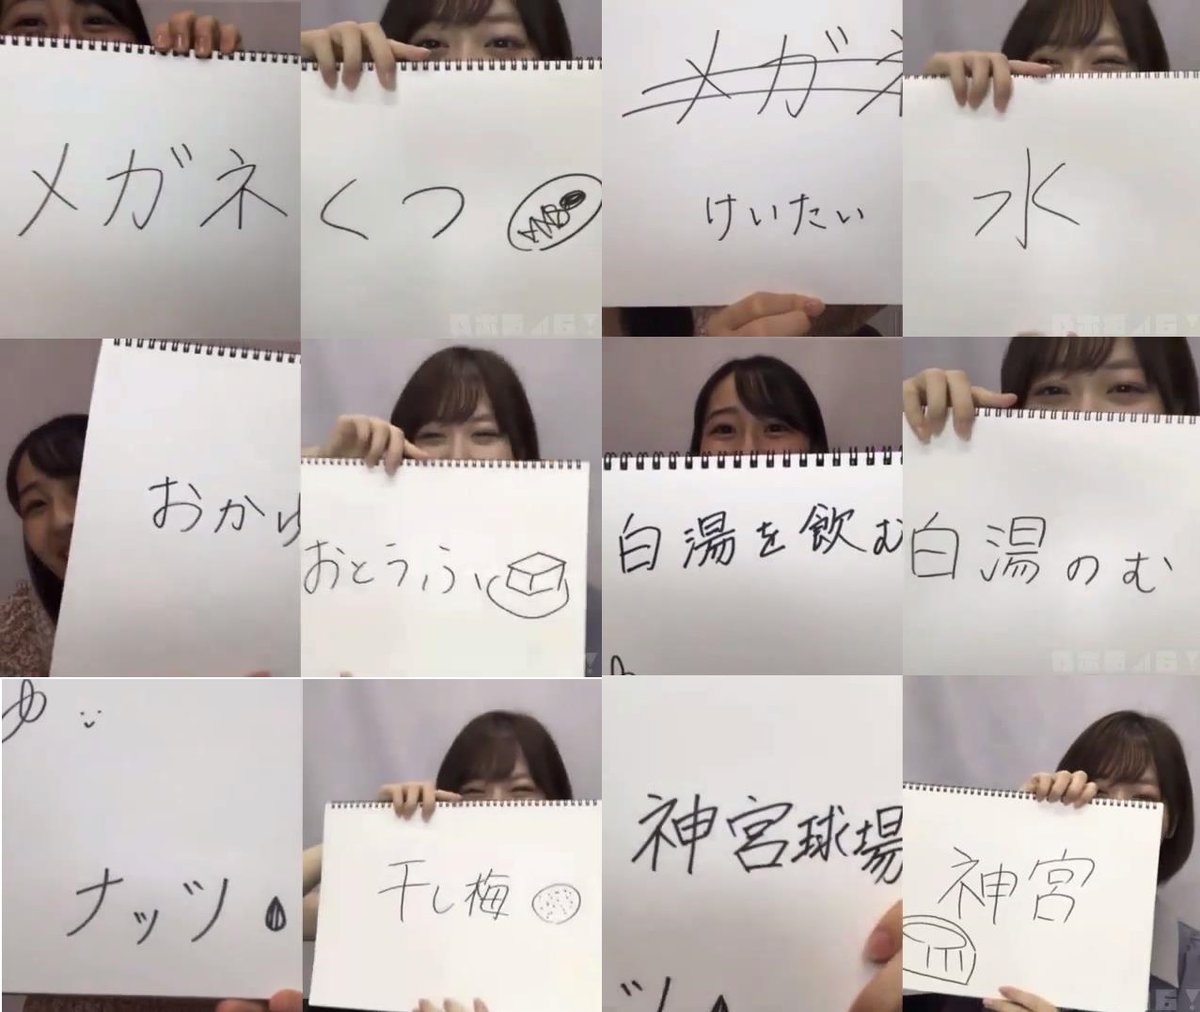 メガネ
くつ
メガネ
けいたい
水
おかゆ
おとうふ
白湯を飲む
白湯のむ
ナッツ
干し梅
神宮球場
神宮